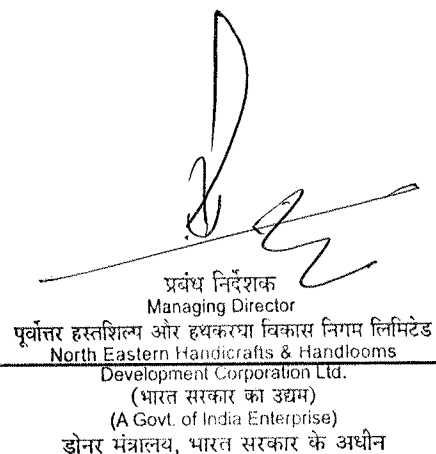 प्रबंध निर्देशक
Managing Director
पूर्वोत्तर हस्तशिल्प ओर हथकरघा विकास निगम लिमिटेड
North Eastern Handicrafts & Handlooms
Development Corporation Ltd.
(भारत सरकार का उद्यम)
(A Govt. of India Enterprise)
डोनर मंत्रालय, भारत सरकार के अधीन